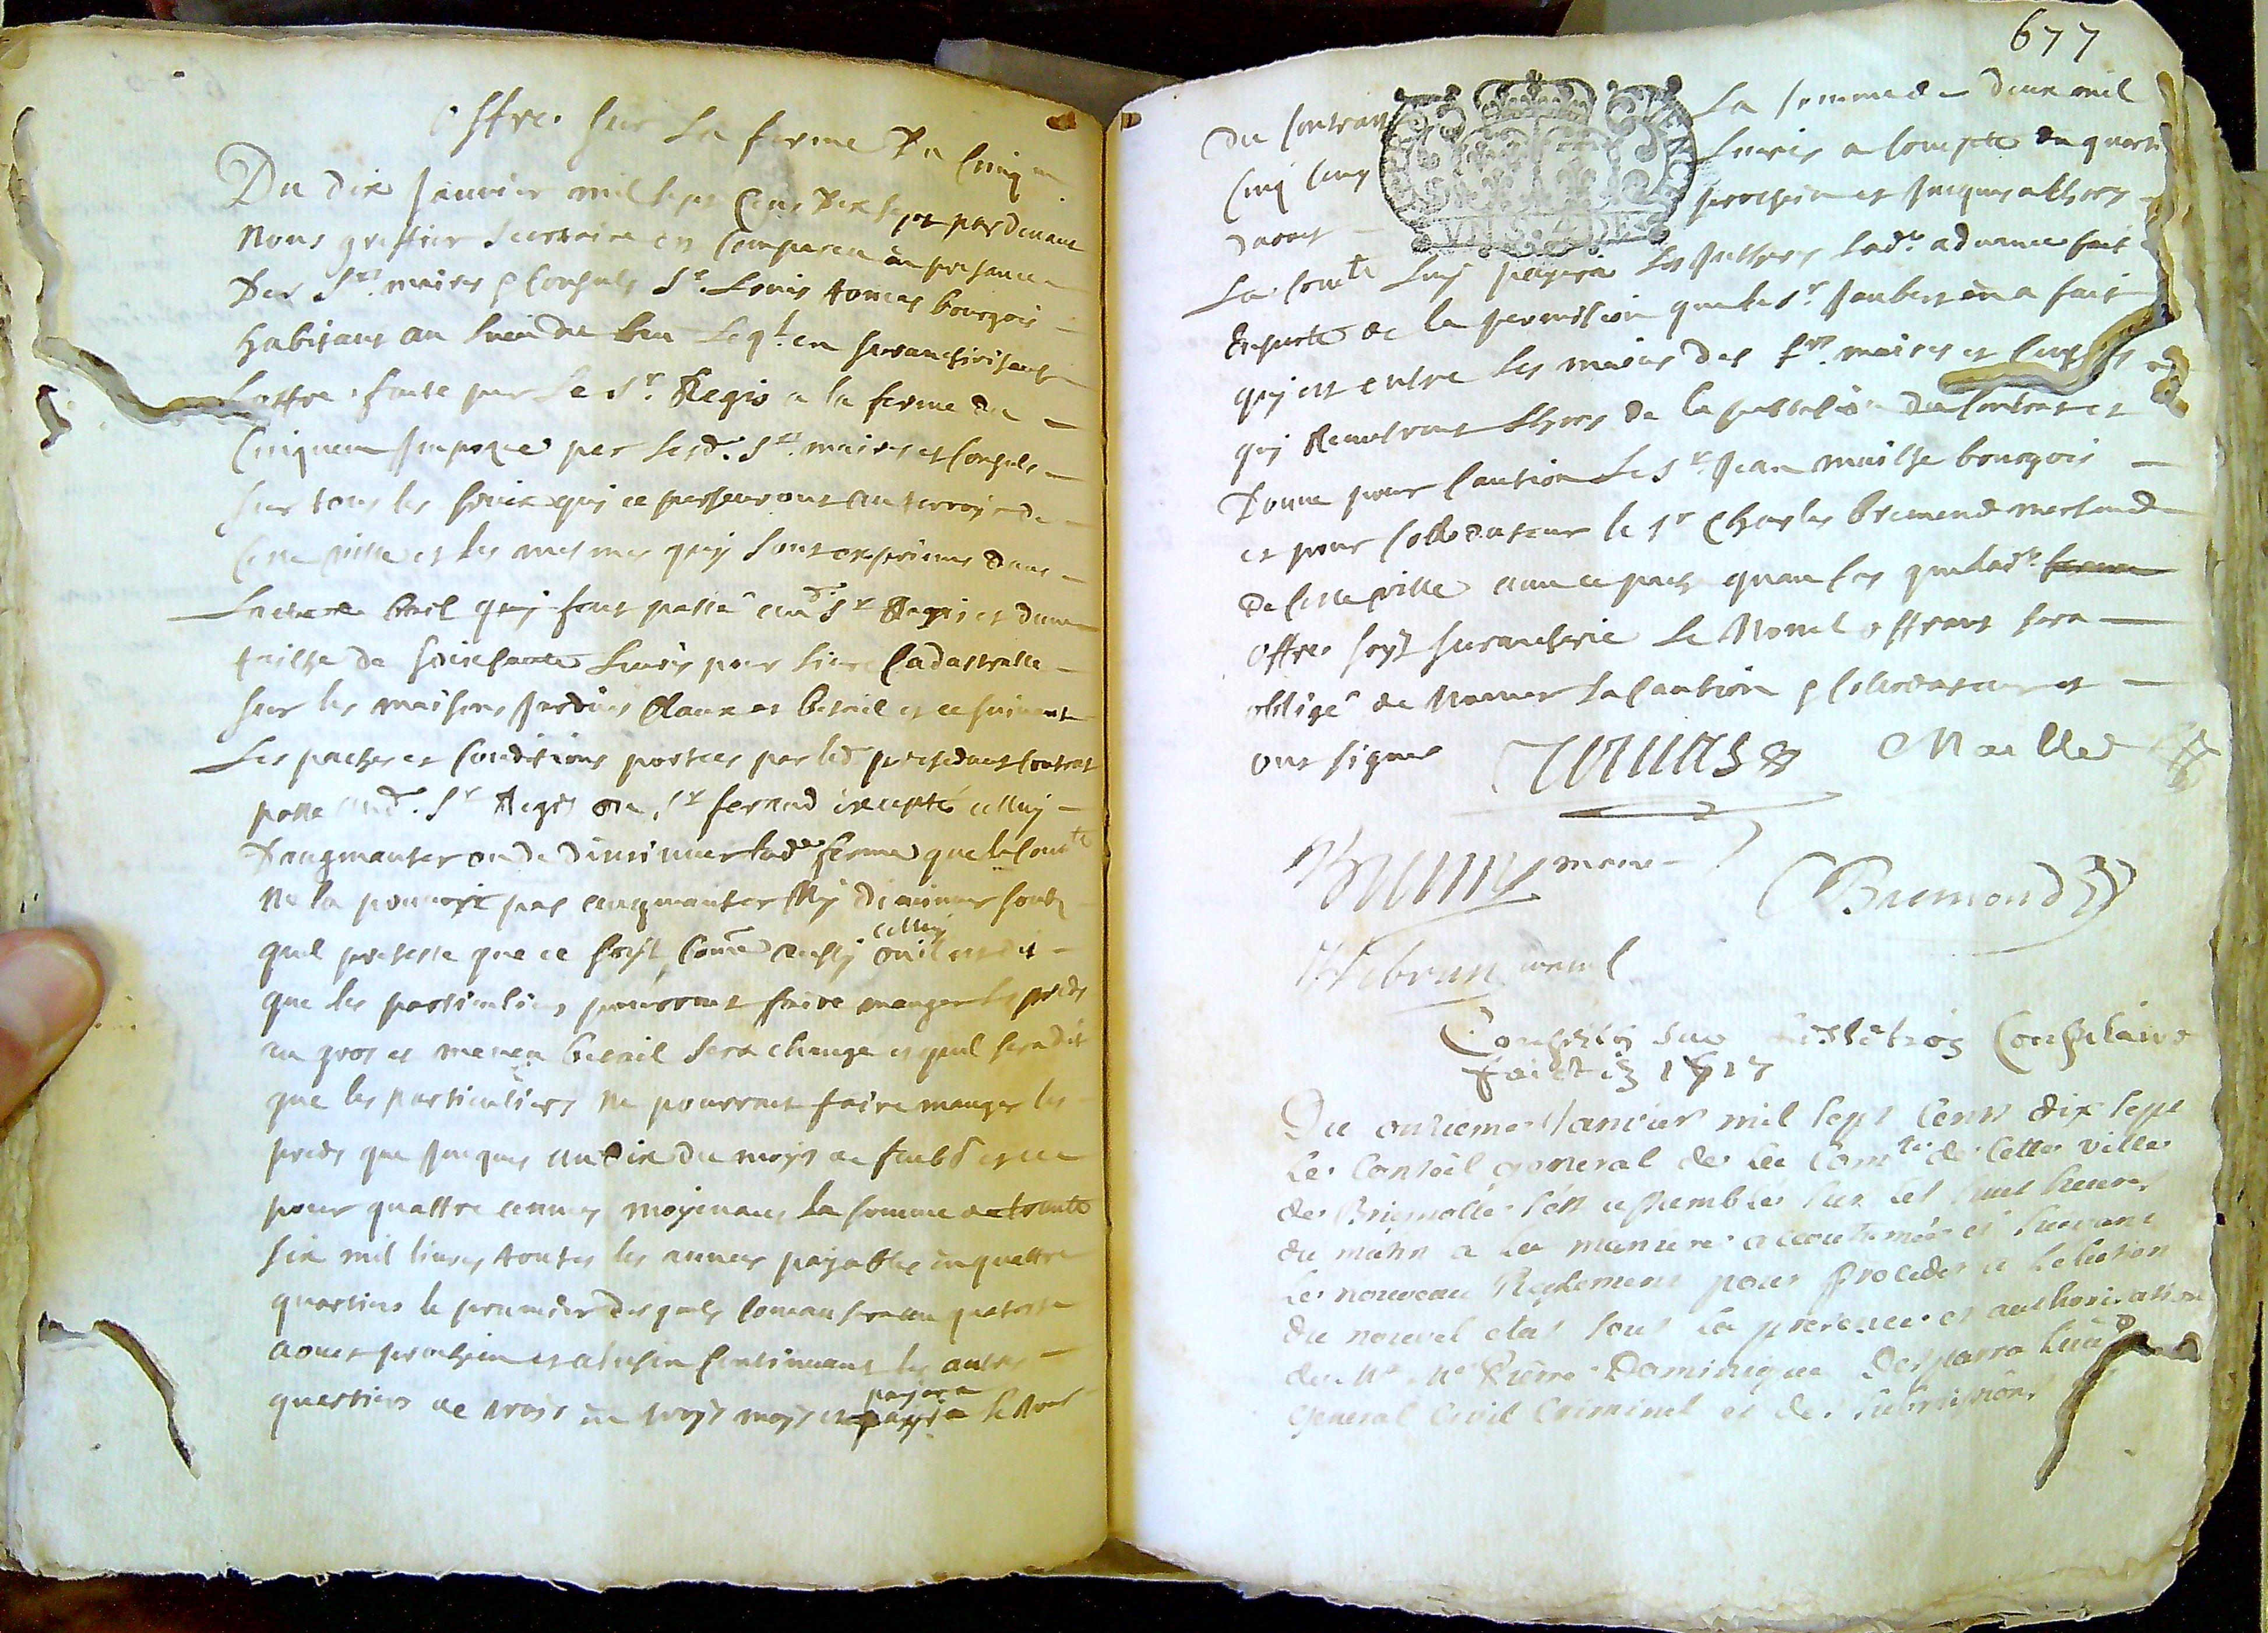 Offre sur la ferme du cinq en
Du dix janvier mil sept cens dix sept pardevant
nous greffier secretaire est comparu en presance
des Srs maires & consuls Sr Louis tomas bourgois
habitant au lieu de leq.l en surancherissant
Loffre faite par le Sr Regis a la ferme du
cinquen impoze par lesd. Srs maires et consuls
sur tous les fruix quy ce persevront au terroir de
cette ville et les mesmes quy sont exprimes dans
Lacte de bail quy fout passé aud. Sr Regis et dune
tailhe de soixsante livres pour livre cadastralle
sur les maisons jardins claux et betail et ce suivant
Les paches et conditions portees par led. presedant contrat
passe aud. Sr Regis ou Sr ferand excepté celluy
daugmanter ou de diminuer lad.e ferme que la com.te
ne la pourroit pas augmanter ny diminuer soubz
quel pretexte que ce soyt, come aussy celluy ou il est dit
que les particuliers pourront faire manger les preds
au gros et menu betail sera change et quil sera dit
que les particuliers ne pourront faire manger les
preds que jusques au dix du moys de et ce
pour quattre annees moyenant la somme de trante
six mil livres toutes les annees payables en quattre
quartiers le premier desquels comansera au
aoust prochain et ainsin continuant les autres
quartiers de trois en troys moys et payera le
677
du contrat La somme de deux mil
cinq cens livres a compte du quartier
daout prochain et jusques alhors
La com.te luy payera les jnthers lad.e advance fait
ensuite de la permision que le Sr Jaubert en a fait
quy est entre les mains des Srs maires et consuls
quy remetront lhors de la passasion du contrat et
donne pour caution le Sr Jean mailhe bourgois
et pour collodateur le Sr Charles bremond marchand
de cette ville avec ce pache quau cas que lad.e
offre soyt surancherie le nouvel offrant sera
obligé de nomer sa caution & collodateur et
ont signes Tomas Mailhe
maire
Bremond
Conseil sur lellection consulaire
faict en 1717
Du onzieme Janvier mil sept cens dix sept
Le Conseil general de la Com.te de Cette ville
de Brignolle sest assemblée sur les huit heures
du matin a la maniere accoutumée et suivant
Le nouveau Reglement pour proceder a lelection
du nouvel etat sous la presence et authorisation
de Mr Me Pierre Dominique Desparra Lieut
General Civil Criminel et de